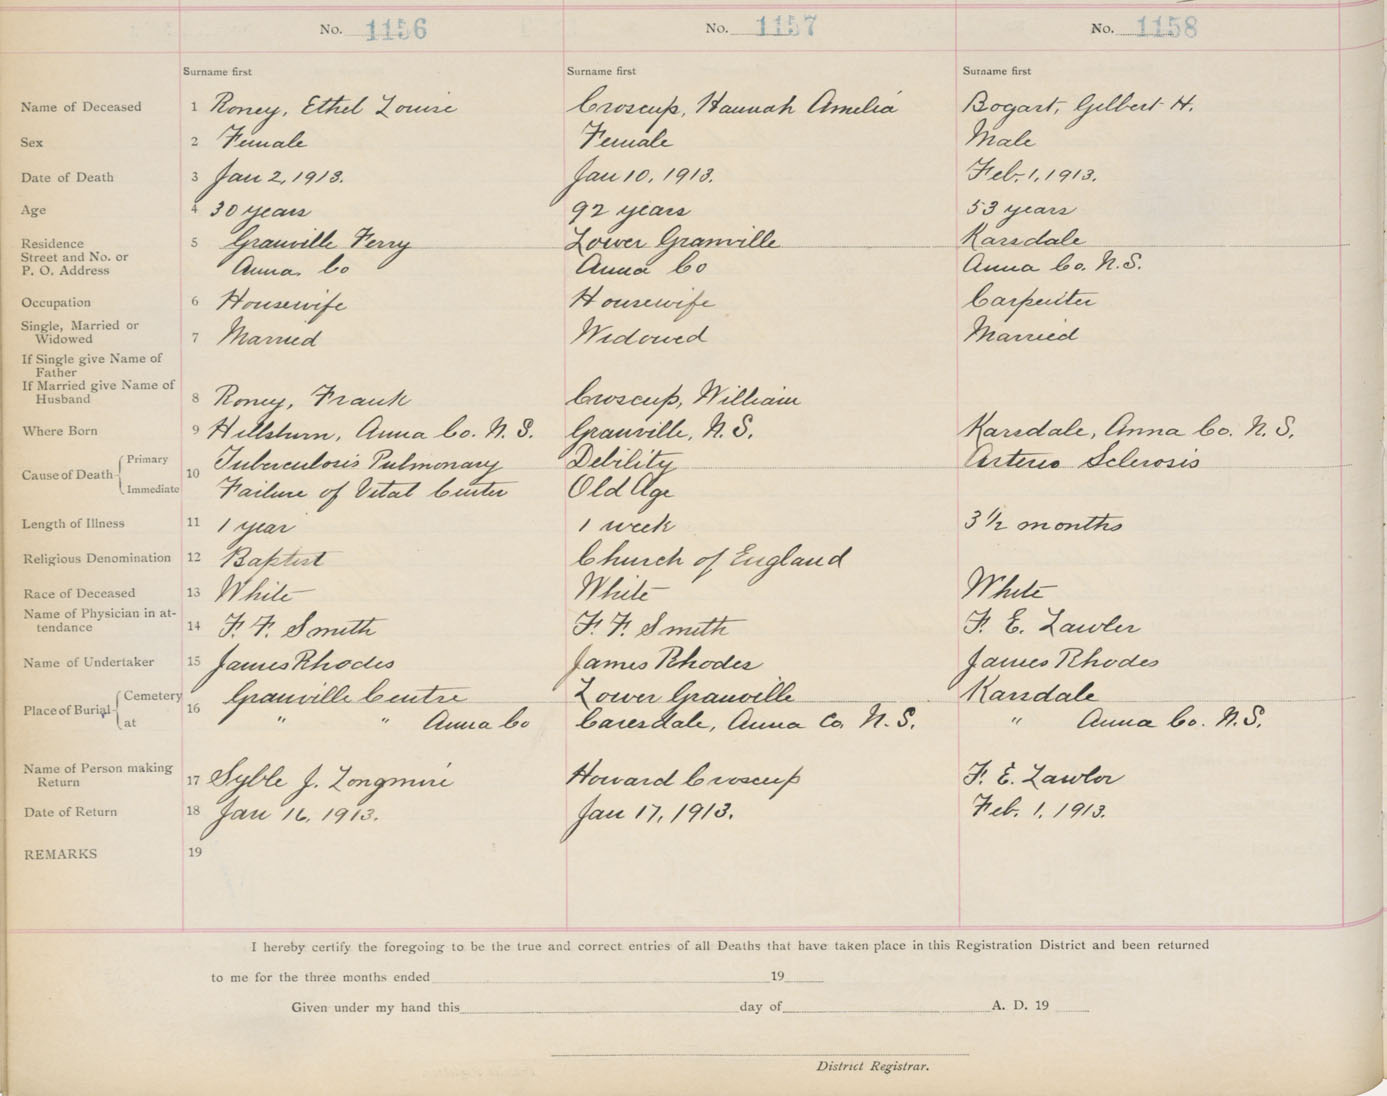 No. 1156 No. 1157 No. 1158
Surname first Surname first Surname first
Name of Deceased 1 Roney, Ethel Louise Croscup, Hannah Amelia Bogart, Gilbert H.
Sex 2 Female Female Male
Date of Death 3 Jan 2, 1913. Jan 10, 1913. Feb. 1, 1913.
Age 4 30 years 92 years 53 years
Residence 5 Granville Ferry Lower Granville Karsdale
Street and No. or
P. O. Address Anna. Co Anna Co Anna Co. N.S.
Occupation 6 Housewife Housewife Carpenter
Single, Married or
Widowed 7 Married Widowed Married
If Single give Name of
Father
If Married give Name of
Husband 8 Roney, Frank Croscup, William
Where Born 9 Hillsburn, Anna Co. N.S. Granville, N.S. Karsdale, Anna Co. N.S.
Cause of Death 10 Primary Tuberculosis Pulmonary Debility Arterio Sclerosis
Immediate Failure of Vital Center Old Age
Length of Illness 11 1 year 1 week 3 1/2 months
Religious Denomination 12 Baptist Church of England
Race of Deceased 13 White White White
Name of Physician in at-
tendance 14 F. F. Smith F. F. Smith F. E. Lawler
Name of Undertaker 15 James Rhodes James Rhodes James Rhodes
Place of Burial 16 Cemetery Granville Centre Lower Granville Karsdale
at " " Anna Co Caresdale, Anna Co, N.S. " Anna Co. N.S.
Name of Person making
Return 17 Syble J. Longmire Howard Croscup F. E. Lawlor
Date of Return 18 Jan 16, 1913. Jan 17, 1913. Feb. 1, 1913.
REMARKS 19
I hereby certify the foregoing to be the true and correct entries of all Deaths that have taken place in this Registration District and been returned
to me for the three months ended 19
Given under my hand this day of A. D. 19
District Registrar.